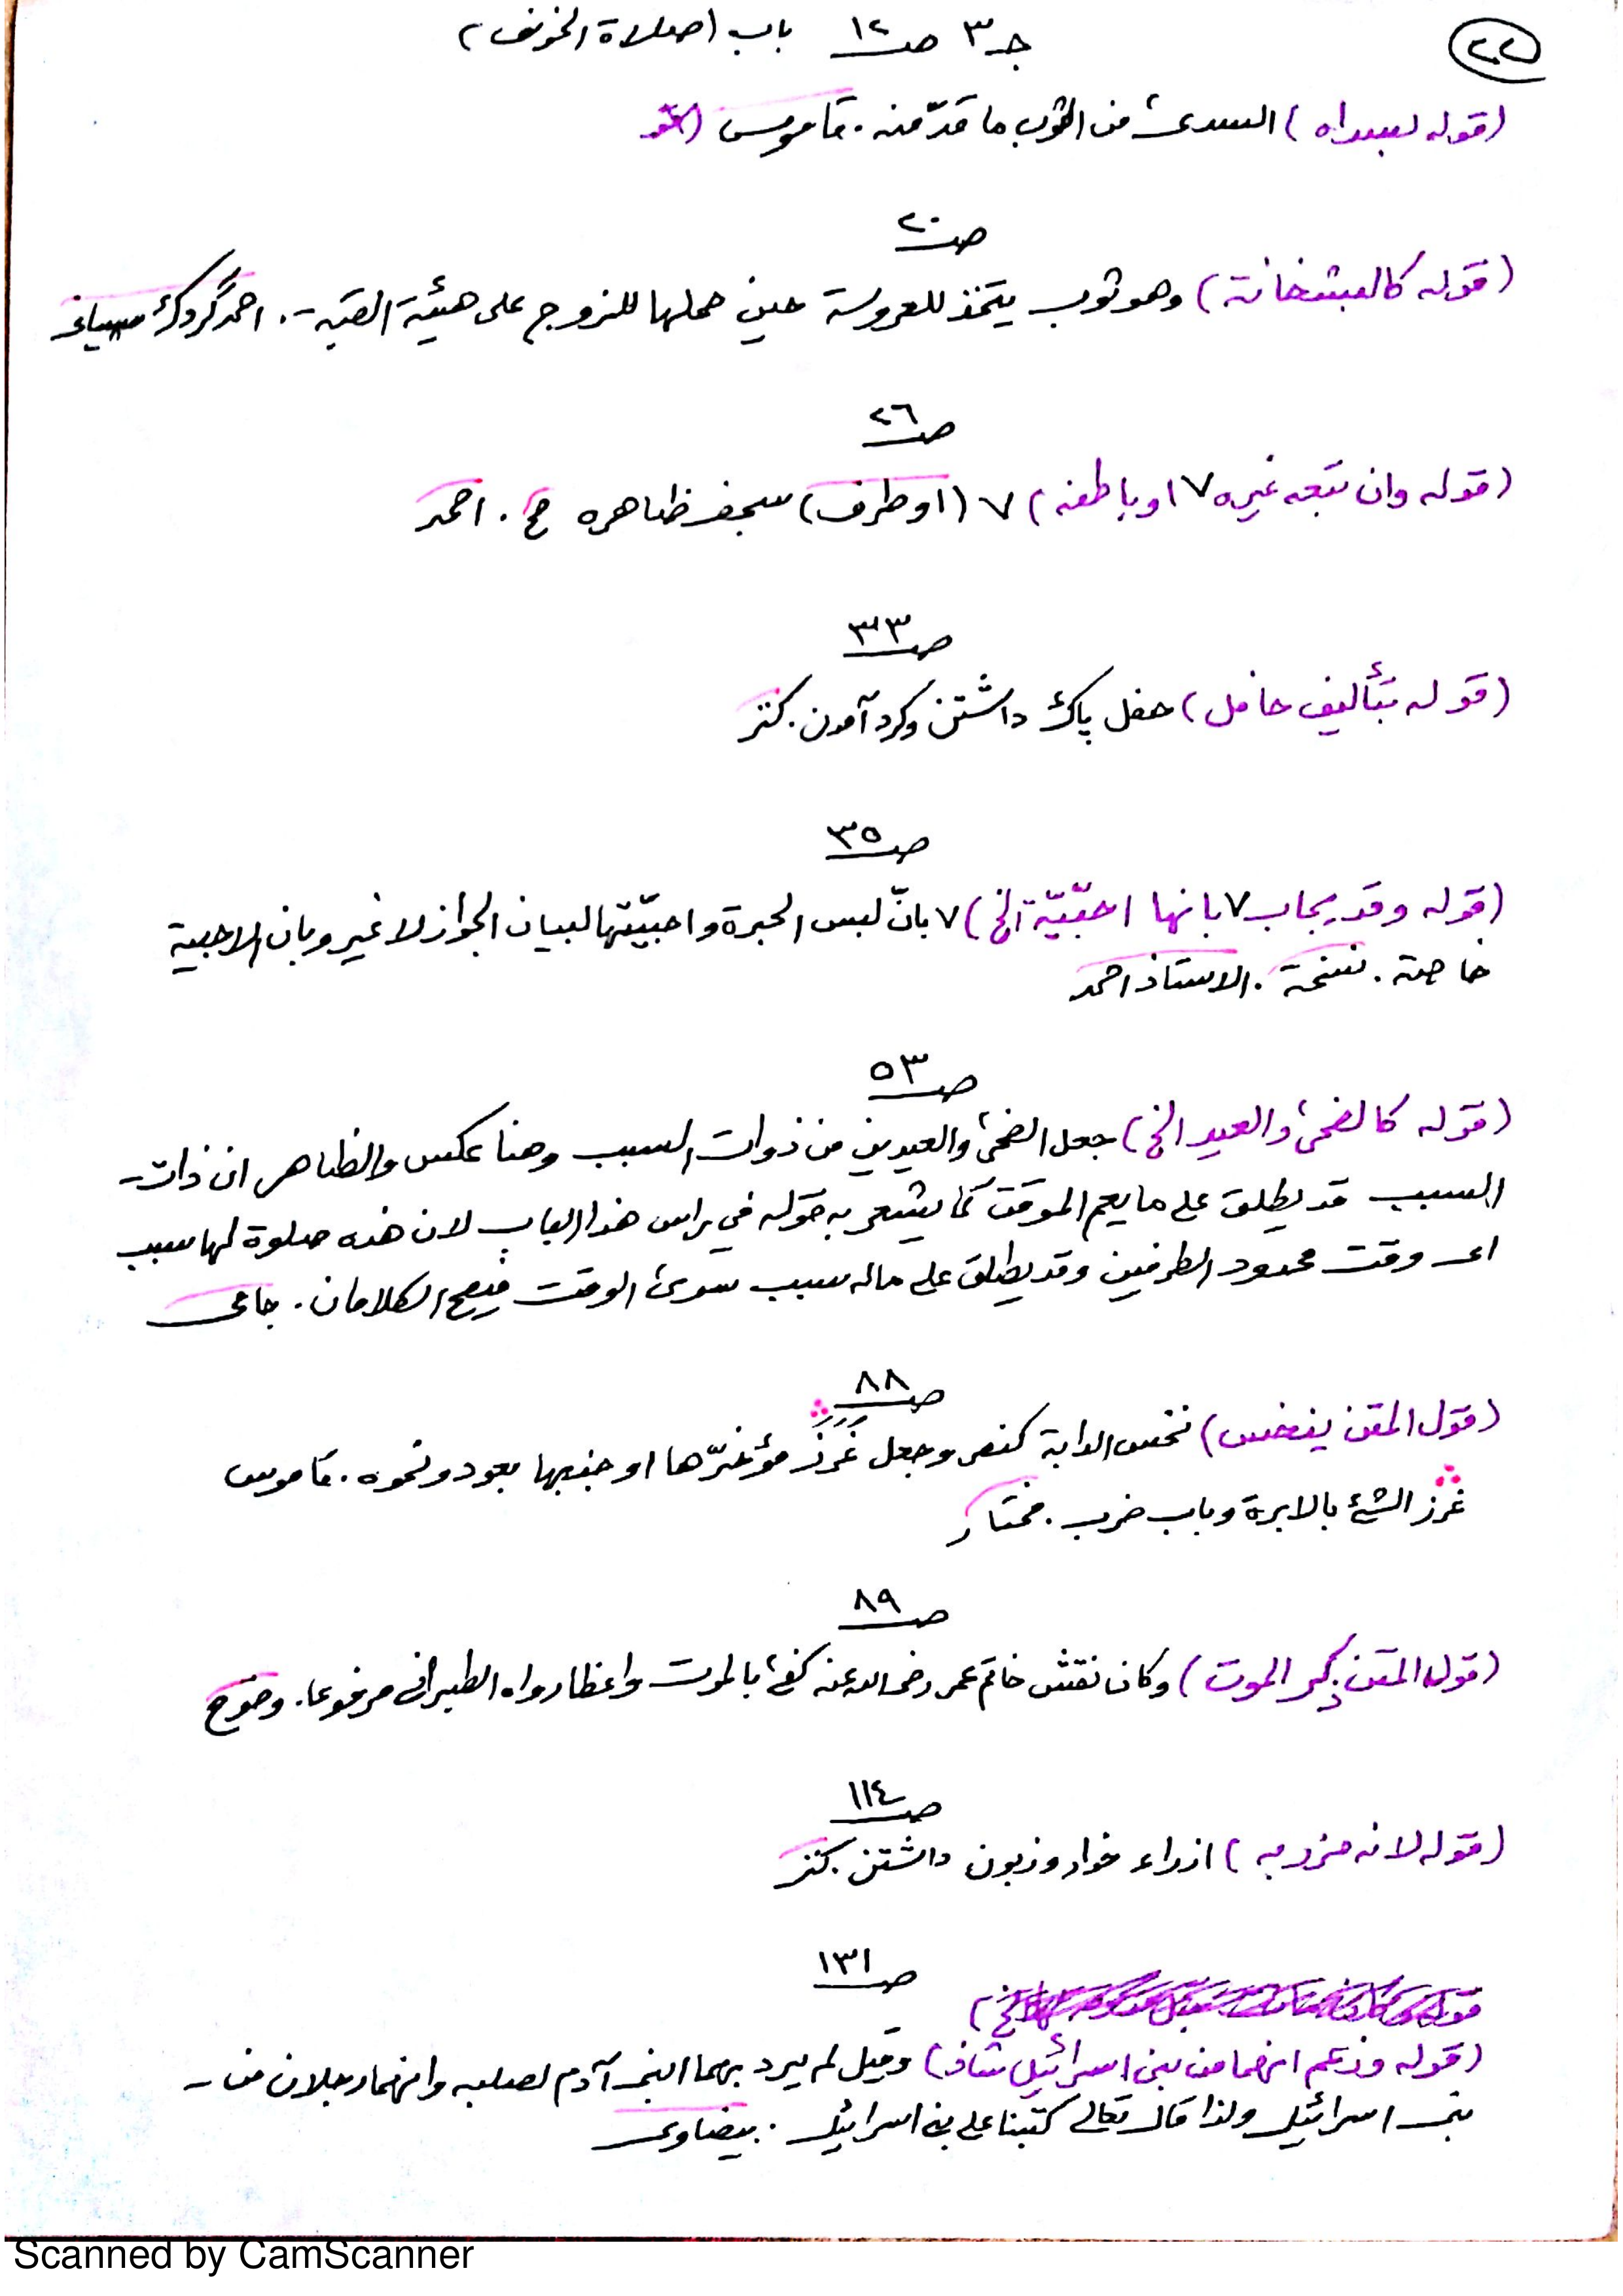 ٢٢
جـ٣ صـ١٢ باب (صلاة الخوف)
(قوله لسداه) السدى من الثوب ما مدّ منه. قاموس
صـ٢٠
(قوله كالبشخانة) وهو ثوب يتخذ للعروسة حين حملها للزوج على هيئة القبة. احمد گردك
صـ٢٦
(قوله وان تبعه غيره ٧ او باطنه) ٧ (او طرف) سجف ظاهره صح. احمد
صـ٣٣
(قوله بتأليف حافل) حفل پاك داشتن وكرد آمدن. كنز
صـ٣٥
(قوله وقد يجاب ٧ بانها احبّيّة الخ) ٧ بانّ لبس الحبرة واحبيّتها لبيان الجواز لا غير وبان الاحبية
خاصة. نسخة. الاستاذ احمد
صـ٥٣
(قوله كالضحى والعيد الخ) جعل الضحى والعيدين من ذوات السبب وهنا عكس والظاهر ان ذات
السبب قد يطلق على ما يعم الموقت كما يشعر به قوله في راس هذا الباب لان هذه صلوة لها سبب
اى وقت محدود الطرفين وقد يطلق على ماله سبب سوى الوقت فيصح الكلامان. جامى
صـ٨٨
(قول المتن ينخس) نخس الدابة كنصر وجعل غرز مؤخرّها او جنبها بعود ونحوه. قاموس
غرز الشئ بالابرة وباب ضرب. مختار
صـ٨٩
(قول المتن بذكر الموت) وكان نقش خاتم عمر رضى الله عنه كفى بالموت واعظا رواه الطبرانى مرفوعا.
صـ١١٤
(قوله لانه مزر به) ازراء خوار وزبون داشتن. كنز
صـ١٣١
(قوله وزعم انهما من بنى اسرائيل شاذ) وقيل لم يرد بهما ابنى آدم لصلبه وانهما رجلان من
بنى اسرائيل ولذا قال تعالى كتبنا على بنى اسرائيل. بيضاوى
Scanned by CamScanner